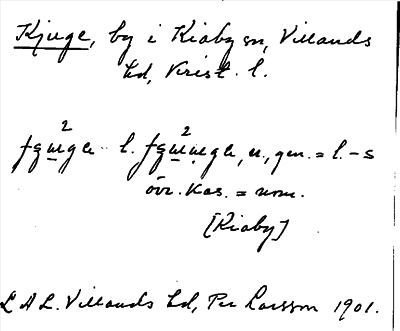 Kjuge, by i Kiaby sn, Villands
hd, Krist. l.
l. n., gen. = l. -s
övr. kas. = nom.
[Kiaby]
L A L. Villands hd, Per Larsson 1901.